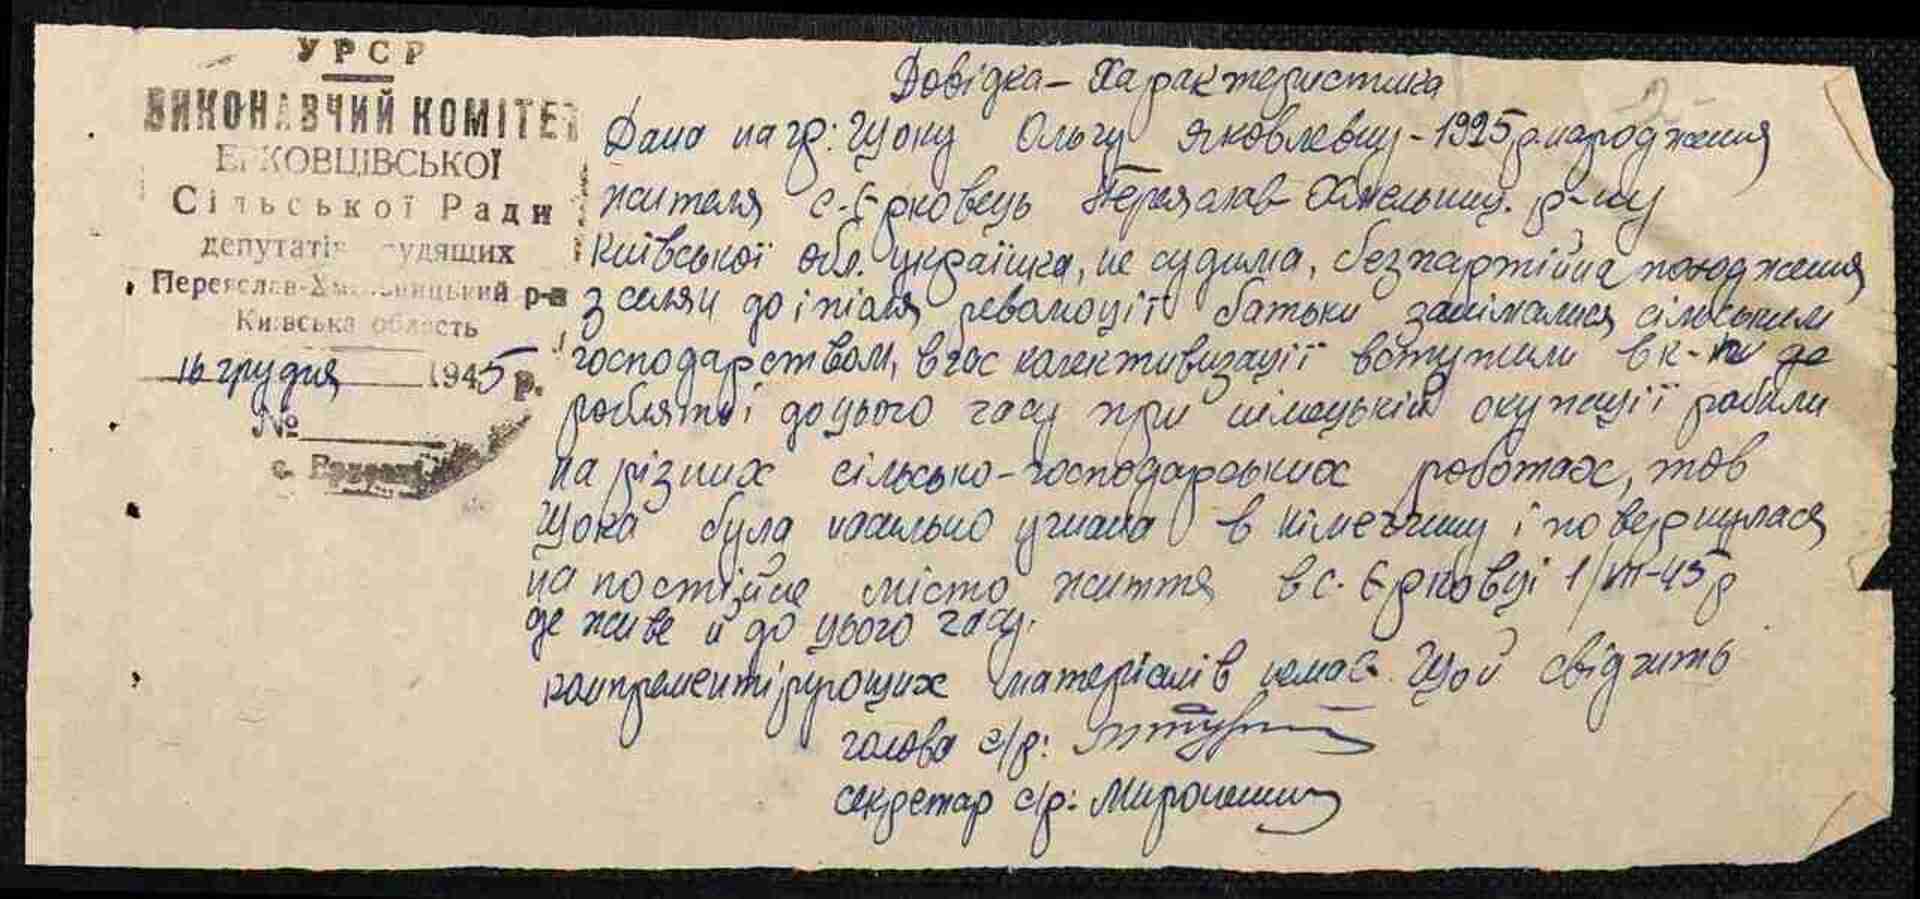 УРСР
ВИКОНАВЧИЙ КОМІТЕТ
ЕРКОВЦІВСЬКОЇ
Сільської Ради
депутатів трудящих
Переяслав-Хмельницький р-н
Київська область
16 грудня 1945 р.
№
с.
2
Довідка - Характеристика
Дана на гр: Щоку Ольгу Яковлевну - 1925 р. народження
жителя с. Єрковець Переяслав-Хмельниц. р-ну
Київської обл. українка, не судима, безпартійна походження
з селян до і після революції батьки занімалися сільським
господарством, в час колективизації вступили в к-п де
роблять і до цього часу при німецькій окупації робили
на різних сільсько-господарських роботах, тов
Щока була насильно угнана в німеччину і повернулася
на постійне місто життя в с. Єрковці 1/VIII-45 р
де живе й до цього часу.
компрементірующих матеріалів немає. Що й свідчить
голова с/р:
секретар с/р: